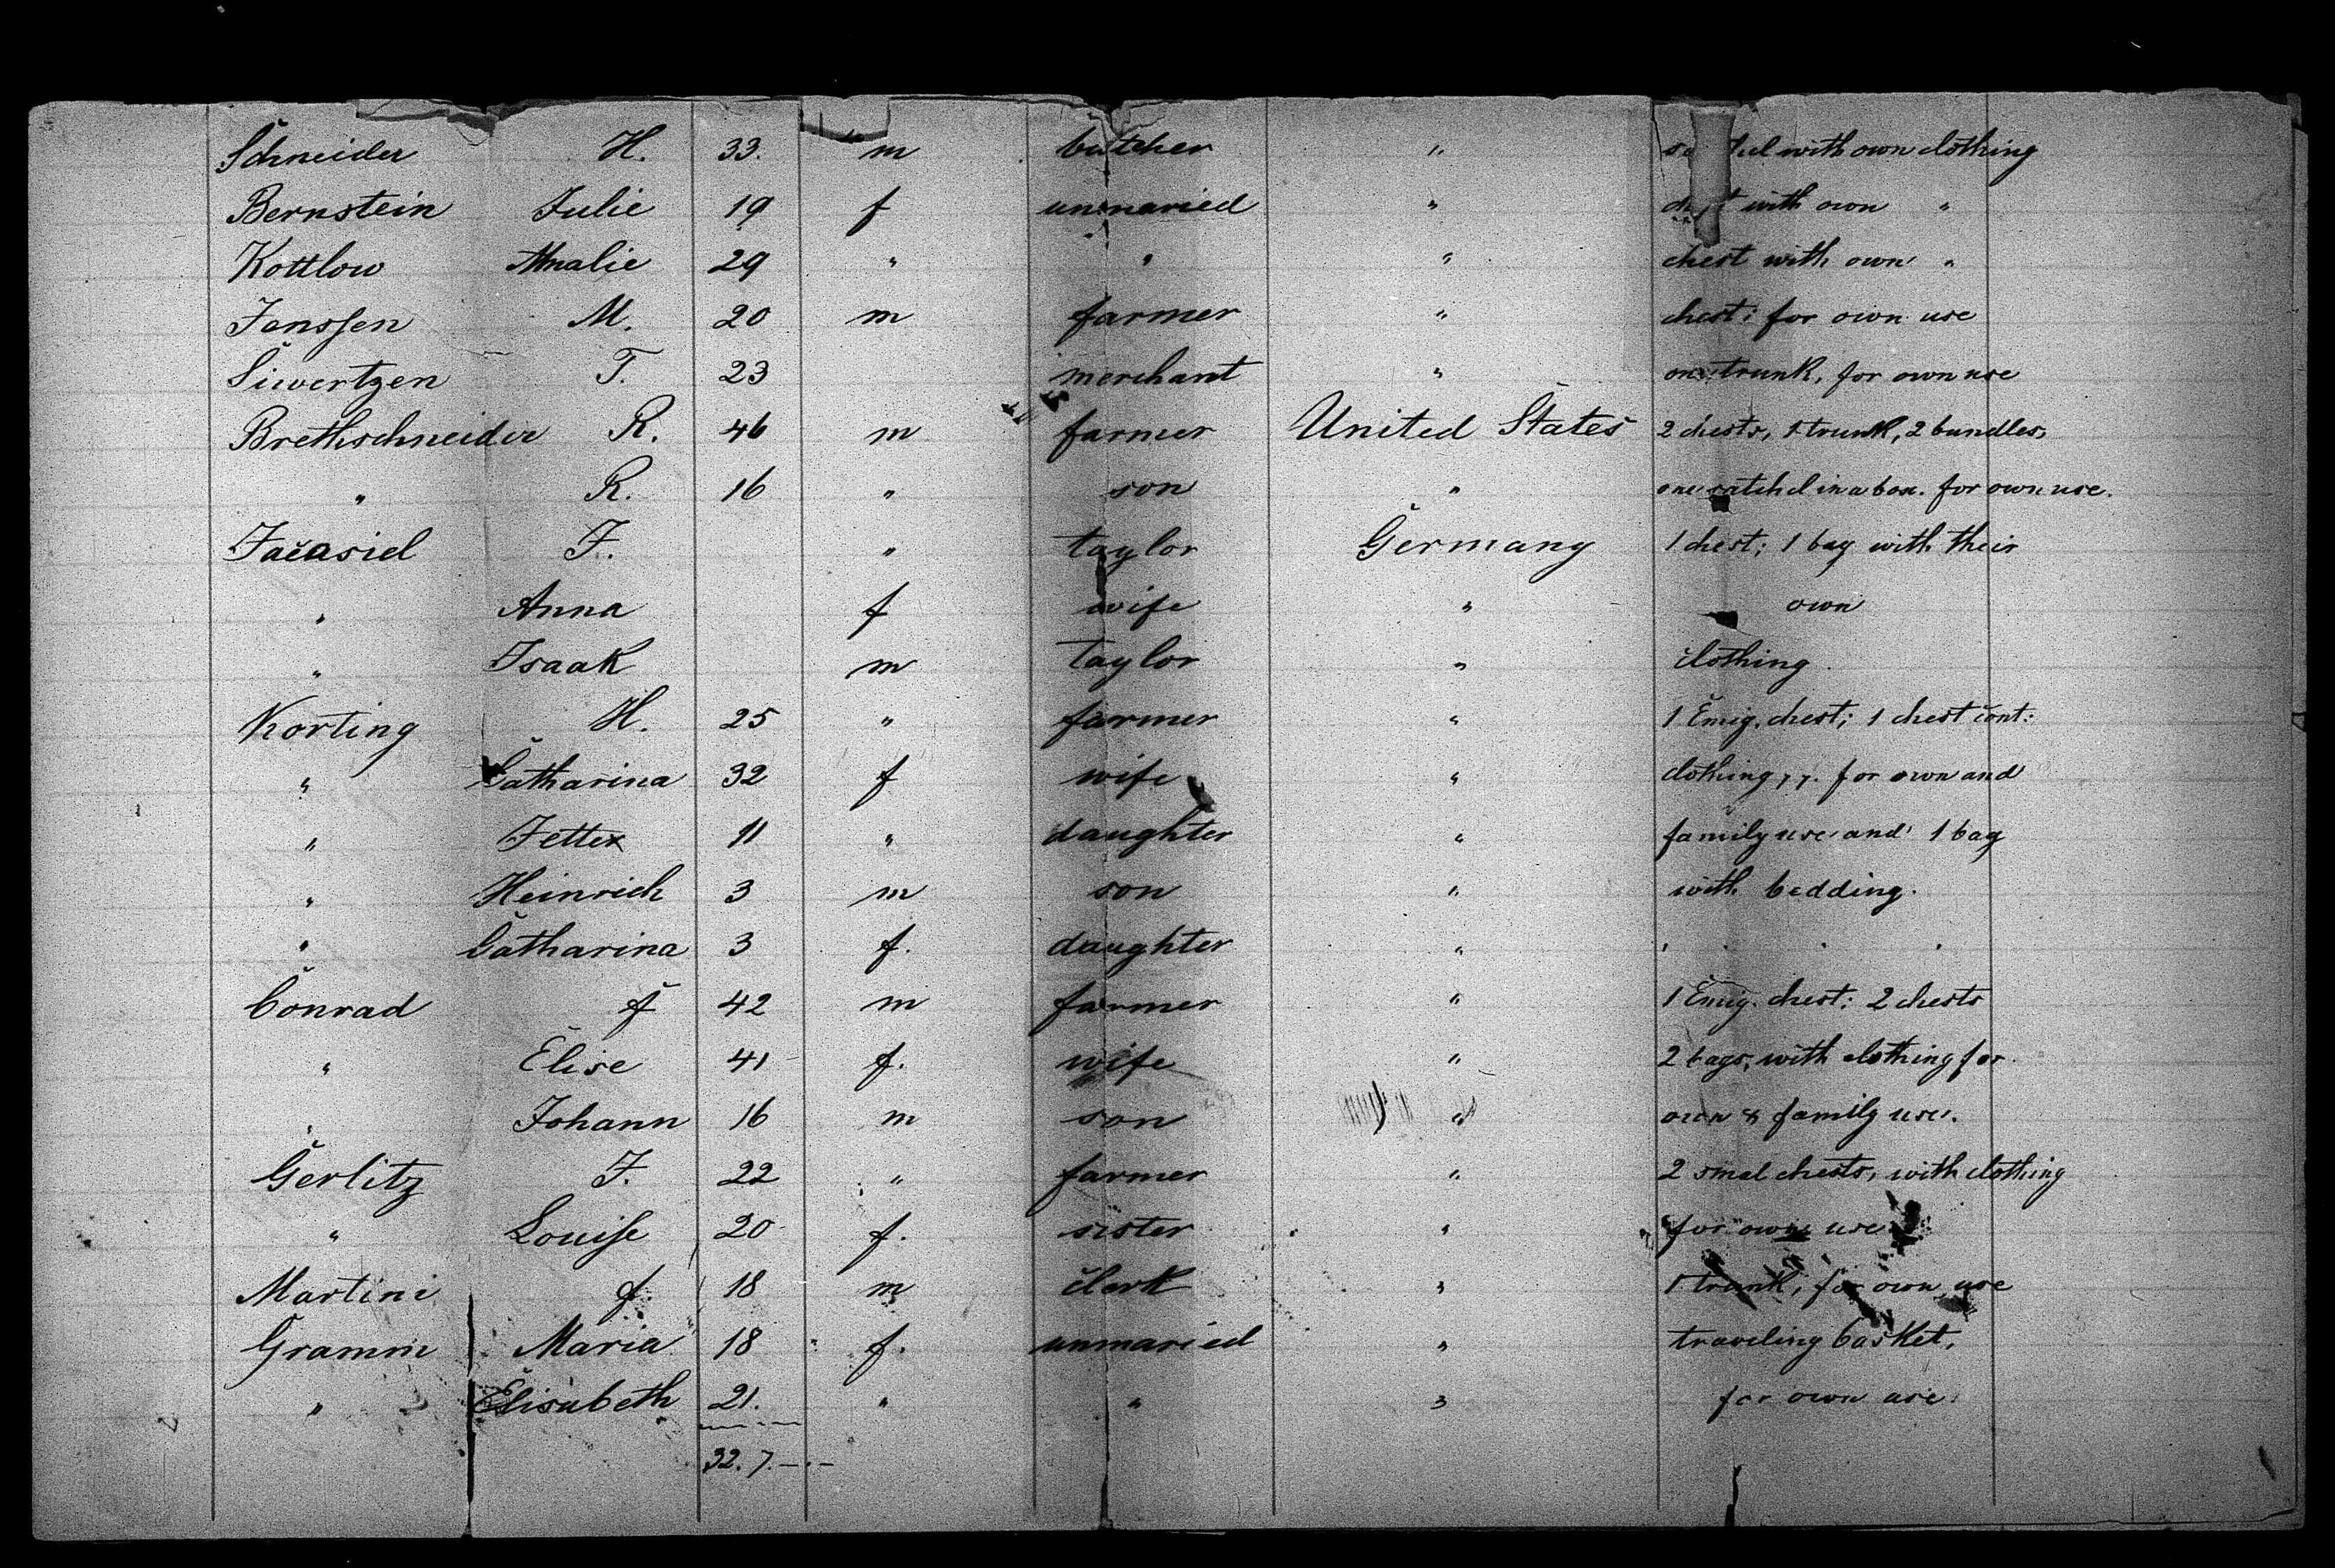 Schneider H. 33. m butcher " with own clothing
Bernstein Julie 19 f unmaried " with own "
Kottlow Amalie 29 " " " chest with own "
Janssen M. 20 m farmer " chest; for own use
Siwertzen T. 23 merchant " one trunk, for own use
Brethschneider R. 46 m farmer United States 2 chests, 1 trunk, 2 bundles,
" R. 16 " son " one satchel in a box. for own use.
J. " taylor Germany 1 chest; 1 bag with their
" Anna f wife " own
" Isaak m taylor " clothing.
Korting H. 25 " farmer " 1 Emig. chest; 1 chest cont:
" Catharina 32 f wife " clothing, for own and
" 11 " daughter " family use and 1 bag
" Heinrich 3 m son " with bedding.
" Catharina 3 f. daughter " " " "
Conrad f 42 m farmer " 1 Emig. chest: 2 chests
" Elise 41 f. wife " 2 bags, with clothing for
" Johann 16 m son " own & family use.
Gerlitz J. 22 " farmer " 2 smal chests, with clothing
" Louise 20 f. sister " for own use
Martini f. 18 m clerk " 1 trunk, for own use
Gramm Maria 18 " f. unmaried " traveling basket,
" Elisabeth 21. " " " for own use.
32. 7. – · –